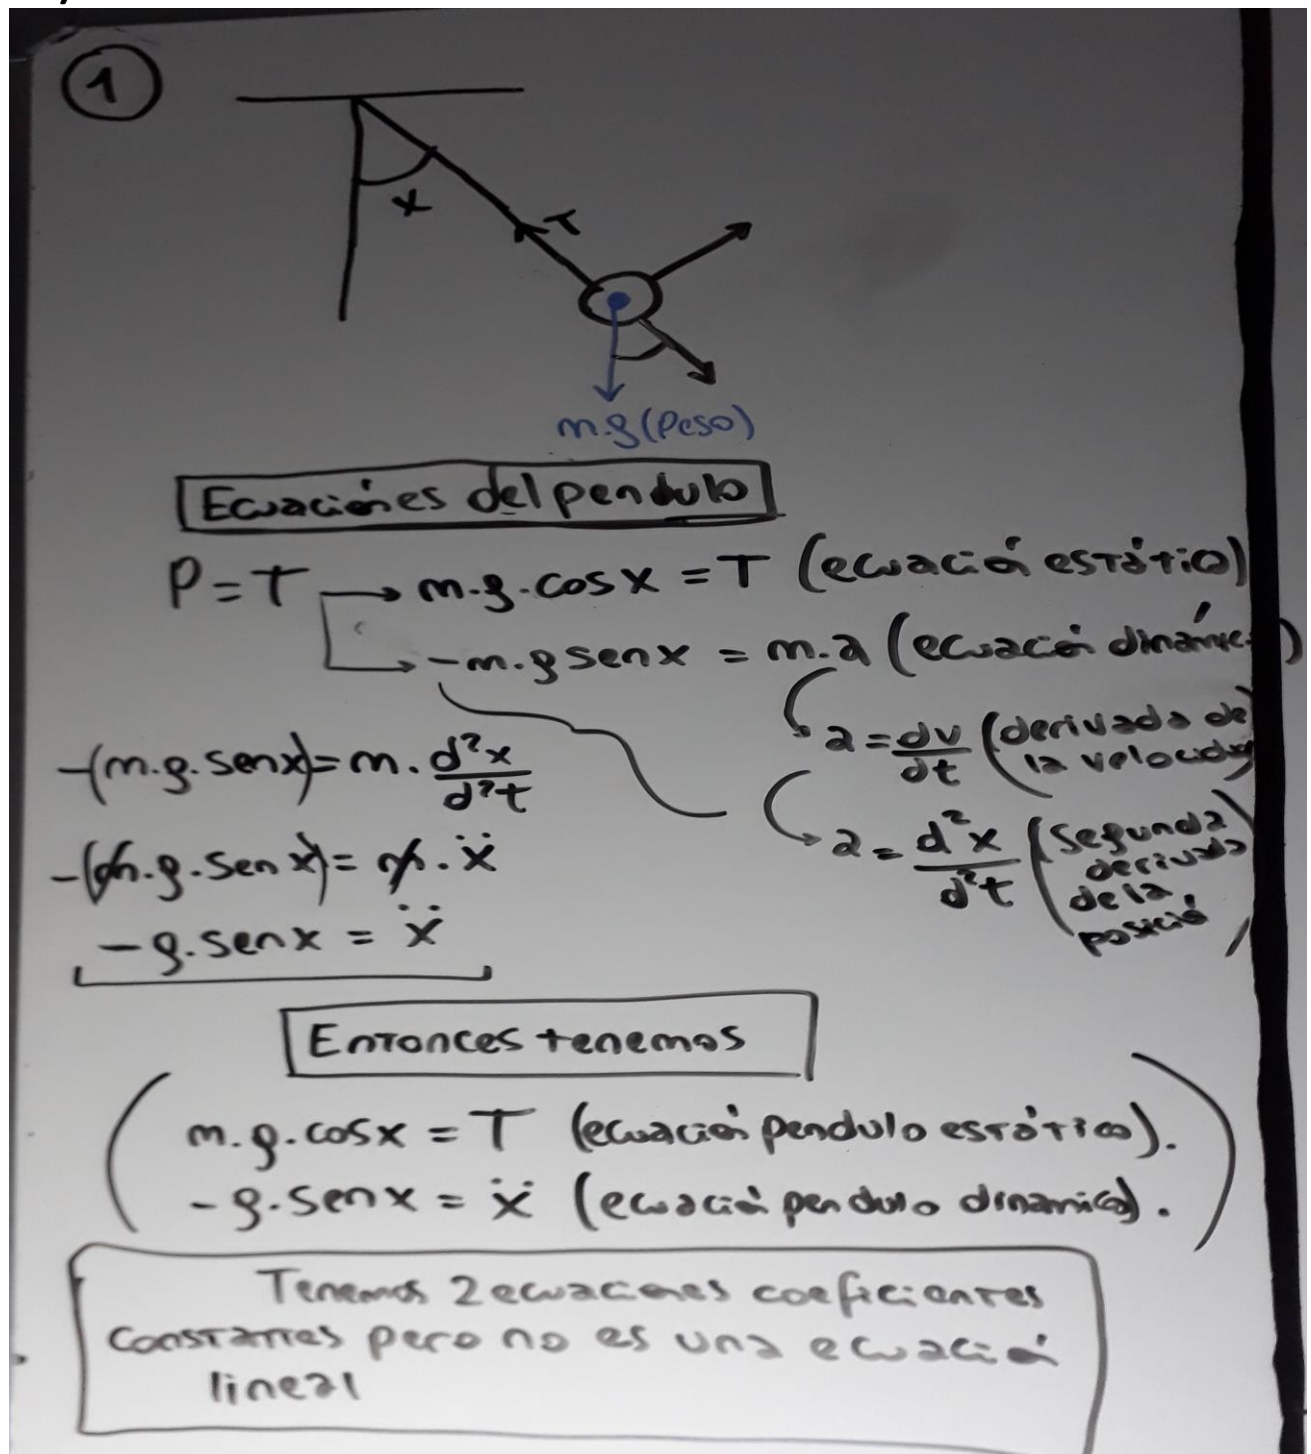 1
x
T
m.g (Peso)
Ecuaciónes del pendulo
P = T → m.g.cosx = T (ecuación estático)
→ -m.g senx = m.a (ecuación dinámic )
a = dv/dt (derivada de la velocidad
-(m.g.senx) = m. d²x/d²t
a = d²x/d²t (segunda derivada de la posició )
-(m.g.senx) = m.ẍ
-g.senx = ẍ
Entonces tenemos
m.g.cosx = T (ecuación pendulo estático).
-g.senx = ẍ (ecuación pendulo dinamico).
Tenemos 2 ecuaciones coeficientes
constantes pero no es una ecuación
lineal